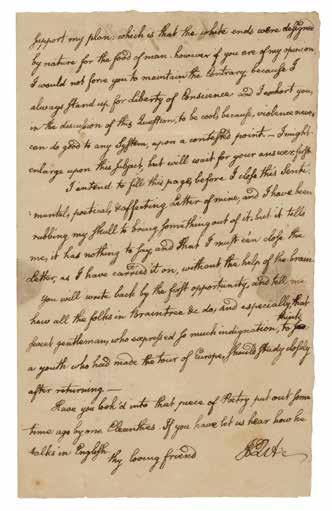 support my plan: which is that the white ends were designed
by nature for the food of man. however if you are of my opinion
I would not force you to maintain the Contrary, because I
always stand up for liberty of Conscience and I exhort you,
in the discussion of this Question, to be cool; because, violence never
can do good to any System, upon a contested point — I might
enlarge upon this subject, but will wait for your answer, first.
I entend to fill this page, before I close this Senti-
mental, poetical, & affecting Letter of mine, and I have been
rubbing my skull to bring something out of it: but it tells
me, it has nothing to say, and that I must e'en close the
Letter, as I have carried it on, without the help of the brain
You will write back by the first opportunity, and tell me
how all the folks in Braintree &c do, and especially, that
sweet gentleman, who expressed so much indignation, to think
a youth who had made the tour of Europe, should study closely
after returning —
Have you look'd into that piece of Poetry put out some
time ago by one Cleanthes. If you have let us hear how he
talks in English
thy loving friend